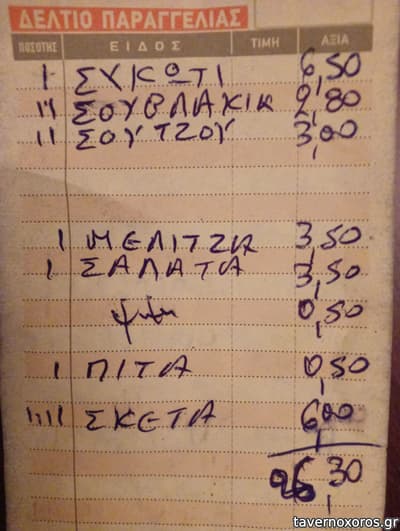 ΔΕΛΤΙΟ ΠΑΡΑΓΓΕΛΙΑΣ
ΠΟΣΟΤΗΣ ΕΙΔΟΣ ΤΙΜΗ ΑΞΙΑ
1 ΣΥΚΩΤΙ 6,50
11 ΣΟΥΒΛΑΚΙΑ 2,80
11 ΣΟΥΤΖΟΥ 3,00
1 ΜΕΛΙΤΖΑ 3,50
1 ΣΑΛΑΤΑ 3,50
0,50
1 ΠΙΤΑ 0,50
1111 ΣΚΕΤΑ 6,00
26,30
tavernoxoros.gr